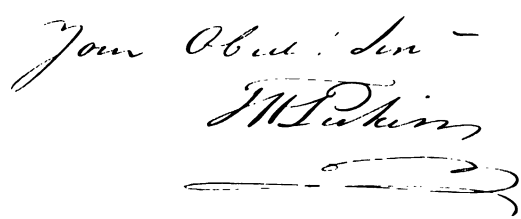 Your Obed: Serv
T H Perkins